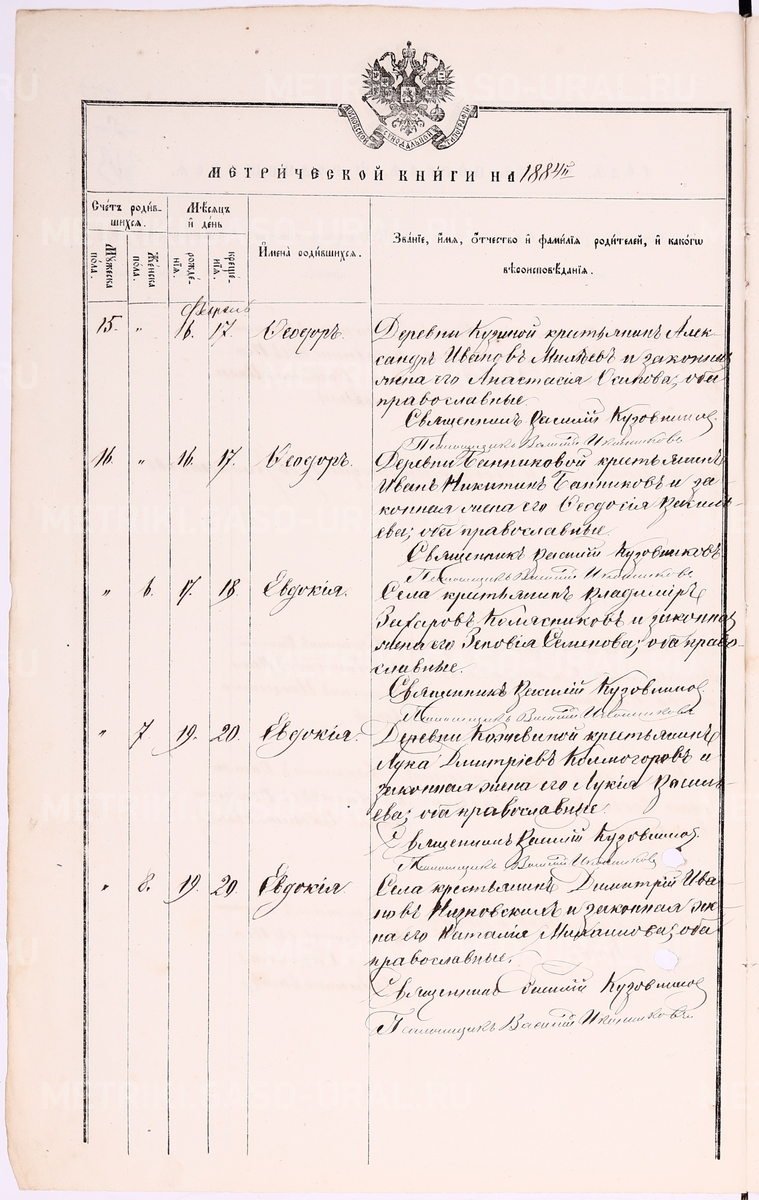 МОСКОВСКОЙ СѴНОДАЛЬНОЙ ТИПОГРАФІИ
МЕТРИ́ЧЕСКОЙ КНИ́ГИ НА 1884й
Сче́тъ роди́в-
шихся.
Мѣ́сяцъ
и҆ де́нь
Мꙋ́жеска
по́ла.
Же́нска
по́ла.
рожде́-
нїѧ.
креще́-
нїѧ.
И҆мена̀ родившихся.
Зва́нїе, и҆́мѧ, ѻ҆́тчество и҆ фами́лїѧ роди́телей, и҆ како́гѡ
вѣроисповѣ́данїѧ.
Февраль
15. „ 16. 17. Ѳеодоръ. Деревни Кузиной крестьянинъ Алек-
сандръ Ивановъ Миляевъ и законная
жена его Анастасія Осипова; оба
православные.
Священникъ Василій Кузовниковъ
Псаломщикъ Василій Иконниковъ
16. „ 16. 17. Ѳеодоръ. Деревни Банниковой крестьянинъ
Иванъ Никитинъ Банниковъ и за-
конная жена его Ѳеодосія Василь-
ева; оба православные.
Священникъ Василій Кузовниковъ
Псаломщикъ Василій Иконниковъ
„ 6. 17. 18. Евдокія. Села крестьянинъ Владиміръ
Захаровъ Колясниковъ и законная
жена его Зеновія Семенова; оба право-
славные.
Священникъ Василій Кузовниковъ
Псаломщикъ Василій Иконниковъ
„ 7 19. 20. Евдокія. Деревни Кожевиной крестьянинъ
Лука Дмитріевъ Колмогоровъ и
законная жена его Лукія Василь-
ева; оба православные.
Священникъ Василій Кузовниковъ
Псаломщикъ Василій Иконниковъ
„ 8. 19. 20. Евдокія Села крестьянинъ Димитрій Ива-
новъ и законная же-
на его Наталія Михаилова; оба
православные.
Священникъ Василій Кузовниковъ
Псаломщикъ Василій Иконниковъ